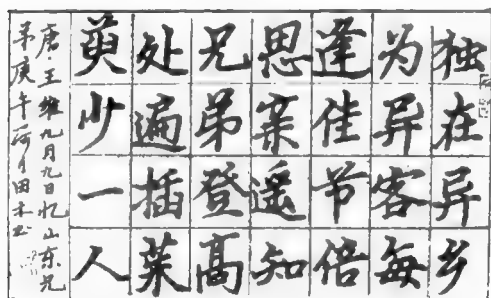 独在异乡
为异客每
逢佳节倍
思亲遥知
兄弟登高
处遍插茱
萸少一人
唐·王维九月九日忆山东兄
弟庚午荷月田木书